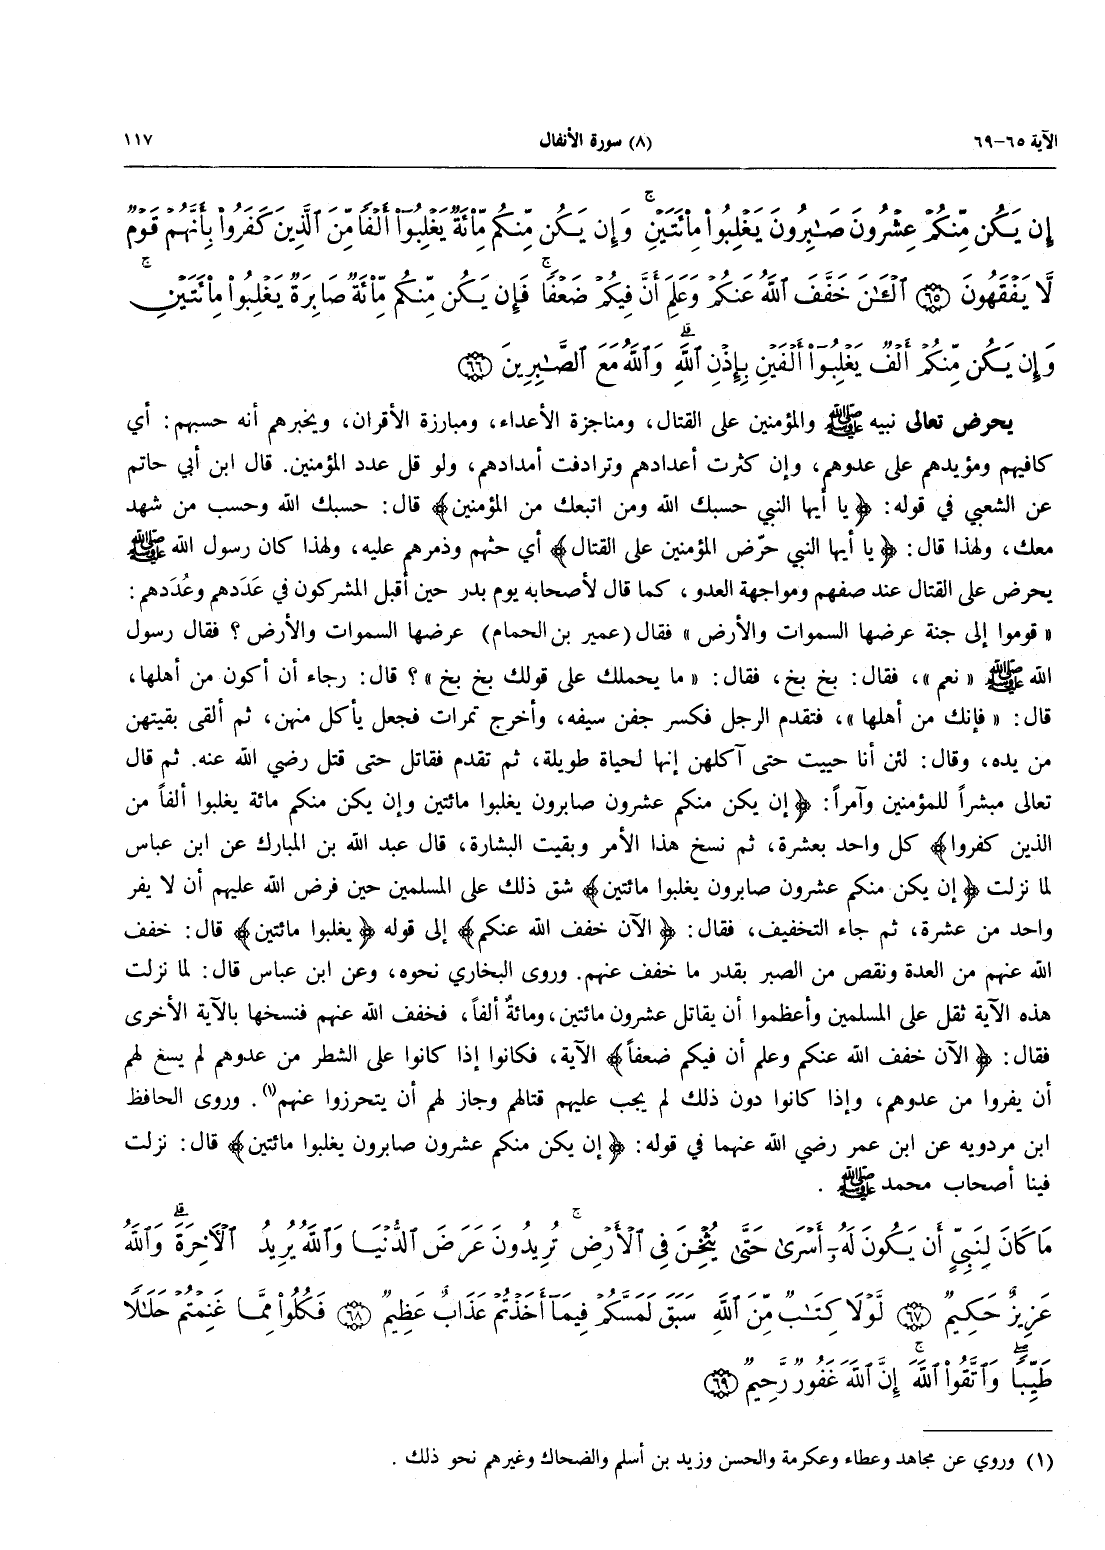 الآية ٦٥-٦٩ (٨) سورة الأنفال ١١٧
إِن يَكُن مِّنكُمْ عِشْرُونَ صَـٰبِرُونَ يَغْلِبُوا۟ مِا۟ئَتَيْنِ ۚ وَإِن يَكُن مِّنكُم مِّا۟ئَةٌ يَغْلِبُوٓا۟ أَلْفًا مِّنَ ٱلَّذِينَ كَفَرُوا۟ بِأَنَّهُمْ قَوْمٌ
لَّا يَفْقَهُونَ ٦٥ ٱلْـَٔـٰنَ خَفَّفَ ٱللَّهُ عَنكُمْ وَعَلِمَ أَنَّ فِيكُمْ ضَعْفًا ۚ فَإِن يَكُن مِّنكُم مِّا۟ئَةٌ صَابِرَةٌ يَغْلِبُوا۟ مِا۟ئَتَيْنِ ۚ
وَإِن يَكُن مِّنكُمْ أَلْفٌ يَغْلِبُوٓا۟ أَلْفَيْنِ بِإِذْنِ ٱللَّهِ ۗ وَٱللَّهُ مَعَ ٱلصَّـٰبِرِينَ ٦٦
يحرض تعالى نبيه ﷺ والمؤمنين على القتال، ومناجزة الأعداء، ومبارزة الأقران، ويخبرهم أنه حسبهم: أي
كافيهم ومؤيدهم على عدوهم، وإن كثرت أعدادهم وترادفت أمدادهم، ولو قل عدد المؤمنين. قال ابن أبي حاتم
عن الشعبي في قوله: ﴿يا أيها النبي حسبك الله ومن اتبعك من المؤمنين﴾ قال: حسبك الله وحسب من شهد
معك، ولهذا قال: ﴿يا أيها النبي حرّض المؤمنين على القتال﴾ أي حثهم وذمرهم عليه، ولهذا كان رسول الله ﷺ
يحرض على القتال عند صفهم ومواجهة العدو، كما قال لأصحابه يوم بدر حين أقبل المشركون في عَدَدهم وعُدَدهم:
« قوموا إلى جنة عرضها السموات والأرض » فقال (عمير بن الحمام) عرضها السموات والأرض ؟ فقال رسول
الله ﷺ « نعم »، فقال: بخ بخ، فقال: « ما يحملك على قولك بخ بخ »؟ قال: رجاء أن أكون من أهلها،
قال: « فإنك من أهلها »، فتقدم الرجل فكسر جفن سيفه، وأخرج تمرات فجعل يأكل منهن، ثم ألقى بقيتهن
من يده، وقال: لئن أنا حييت حتى آكلهن إنها لحياة طويلة، ثم تقدم فقاتل حتى قتل رضي الله عنه. ثم قال
تعالى مبشراً للمؤمنين وآمراً: ﴿إن يكن منكم عشرون صابرون يغلبوا مائتين وإن يكن منكم مائة يغلبوا ألفاً من
الذين كفروا﴾ كل واحد بعشرة، ثم نسخ هذا الأمر وبقيت البشارة، قال عبد الله بن المبارك عن ابن عباس
لما نزلت ﴿إن يكن منكم عشرون صابرون يغلبوا مائتين﴾ شق ذلك على المسلمين حين فرض الله عليهم أن لا يفر
واحد من عشرة، ثم جاء التخفيف، فقال: ﴿الآن خفف الله عنكم﴾ إلى قوله ﴿يغلبوا مائتين﴾ قال: خفف
الله عنهم من العدة ونقص من الصبر بقدر ما خفف عنهم. وروى البخاري نحوه، وعن ابن عباس قال: لما نزلت
هذه الآية ثقل على المسلمين وأعظموا أن يقاتل عشرون مائتين، ومائةٌ ألفاً، فخفف الله عنهم فنسخها بالآية الأخرى
فقال: ﴿الآن خفف الله عنكم وعلم أن فيكم ضعفاً﴾ الآية، فكانوا إذا كانوا على الشطر من عدوهم لم يسغ لهم
أن يفروا من عدوهم، وإذا كانوا دون ذلك لم يجب عليهم قتالهم وجاز لهم أن يتحرزوا عنهم(١). وروى الحافظ
ابن مردويه عن ابن عمر رضي الله عنهما في قوله: ﴿إن يكن منكم عشرون صابرون يغلبوا مائتين﴾ قال: نزلت
فينا أصحاب محمد ﷺ .
مَا كَانَ لِنَبِىٍّ أَن يَكُونَ لَهُۥٓ أَسْرَىٰ حَتَّىٰ يُثْخِنَ فِى ٱلْأَرْضِ ۚ تُرِيدُونَ عَرَضَ ٱلدُّنْيَا وَٱللَّهُ يُرِيدُ ٱلْـَٔاخِرَةَ ۗ وَٱللَّهُ
عَزِيزٌ حَكِيمٌ ٦٧ لَّوْلَا كِتَـٰبٌ مِّنَ ٱللَّهِ سَبَقَ لَمَسَّكُمْ فِيمَآ أَخَذْتُمْ عَذَابٌ عَظِيمٌ ٦٨ فَكُلُوا۟ مِمَّا غَنِمْتُمْ حَلَـٰلًا
طَيِّبًا ۚ وَٱتَّقُوا۟ ٱللَّهَ ۚ إِنَّ ٱللَّهَ غَفُورٌ رَّحِيمٌ ٦٩
(١) وروي عن مجاهد وعطاء وعكرمة والحسن وزيد بن أسلم والضحاك وغيرهم نحو ذلك .